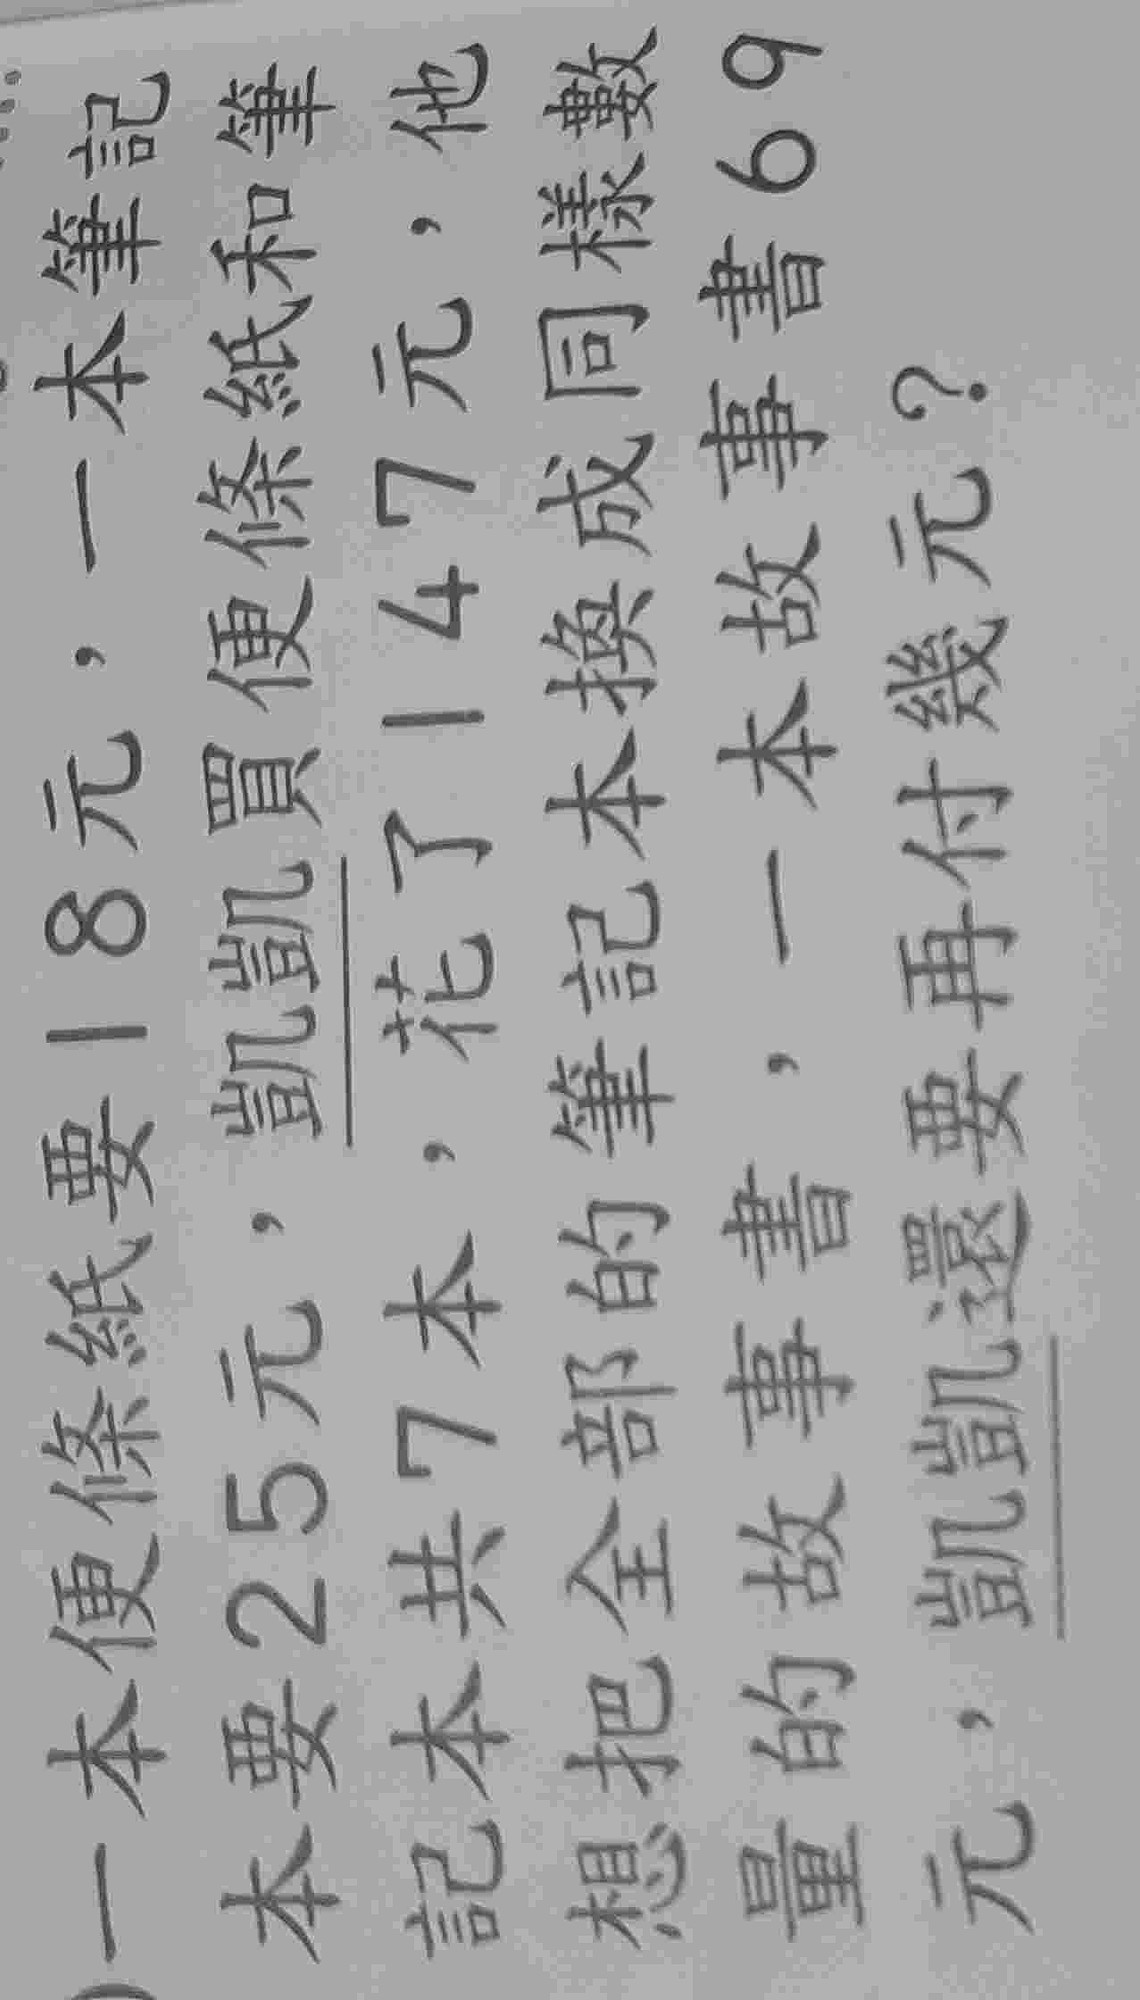 一本便條紙要18元，一本筆記
本要25元，凱凱買便條紙和筆
記本共7本，花了147元，他
想把全部的筆記本換成同樣數
量的故事書，一本故事書69
元，凱凱還要再付幾元？